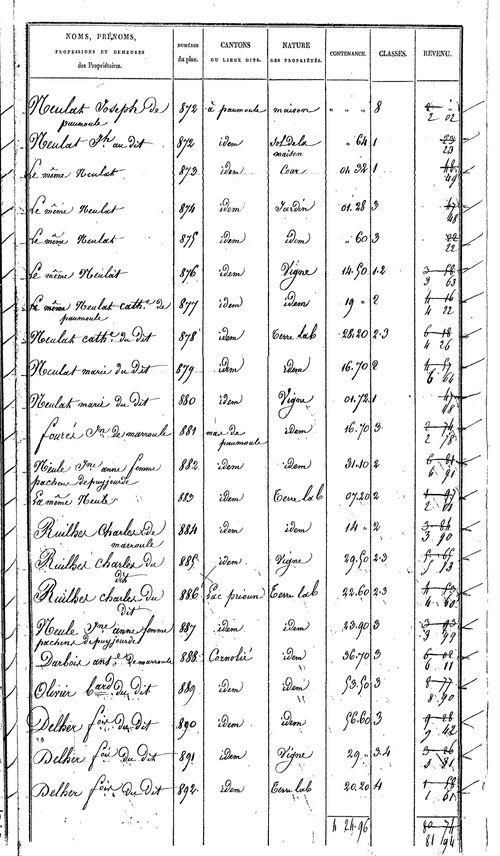 NOMS, PRÉNOMS, PROFESSIONS ET DEMEURES des Propriétaires. NUMÉROS du plan. CANTONS OU LIEUX DITS. NATURE DES PROPRIÉTÉS. CONTENANCE. CLASSES. REVENU.
Neulat Joseph de paumoule 872 à paumoule maison " " " 8 2 02
Neulat Jh au dit 872 idem Sol de la maison " 64 1 23
Le même Neulat 873 idem Cour 01.32 1 49
Le même Neulat 874 idem Jardin 01.28 3 48
Le même Neulat 875 idem idem " 60 3 22
Le même Neulat 876 idem Vigne 14.50 1.2 3 63
Le même Neulat cath.e de paumoule 877 idem idem 19 " 2 4 22
Neulat cath.e du dit 878 idem Terre lab 28.20 2.3 4 26
Neulat marie du dit 879 idem idem 16.70 2 6 64
Neulat marie du dit 880 idem Vigne 01.72 1 48
fourés Jn de marroule 881 mas de paumoule idem 16.70 3 2 78
Neule Jne anne femme pachens de puyjourde 882 idem idem 31.10 2 6 91
La même Neule 883 idem Terre lab 07.20 2 2 01
Ruilhes Charles de marroule 884 idem idem 14 " 2 3 90
Ruilhes charles du dit 885 idem Vigne 29.50 2.3 5 73
Ruilhes charles du dit 886 Lac prioun Terre lab 22.60 2.3 4 60
Neule Jne anne femme pachens de puyjourde 887 idem idem 23.90 3 3 99
Darbois ant.e de marroule 888 Cornolié idem 36.70 3 6 11
Olivier b.ard du dit 889 idem idem 53.50 3 8 90
Delher fois du dit 890 idem idem 56.60 3 9 42
Delher fois du dit 891 idem Vigne 29 " 3.4 3 81
Delher fois du dit 892 idem Terre lab 20.20 4 1 61
4 24.96 80 74
81 194